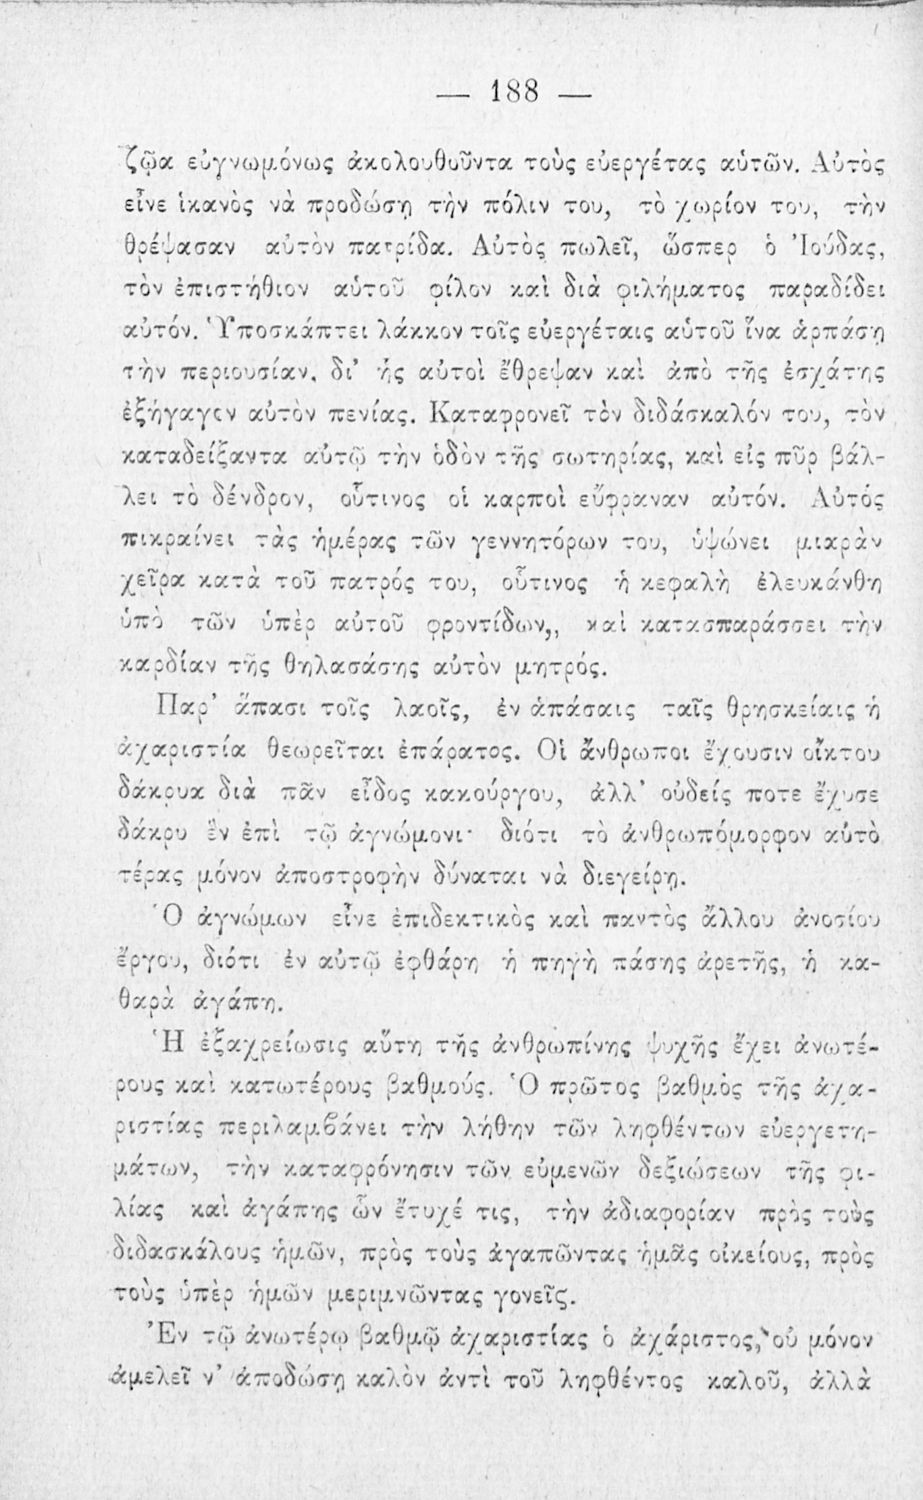 — 188 —
ζῷα εὐγνωμόνως ἀκολουθοῦντα τοὺς εὐεργέτας αὑτῶν. Αὐτὸς
εἶνε ἱκανὸς νὰ προδώσῃ τὴν πόλιν του, τὸ χωρίον του, τὴν
θρέψασαν αὐτὸν πατρίδα. Αὐτὸς πωλεῖ, ὥσπερ ὁ Ἰούδας,
τὸν ἐπιστήθιον αὑτοῦ φίλον καὶ διὰ φιλήματος παραδίδει
αὐτόν. Ὑποσκάπτει λάκκον τοῖς εὐεργέταις αὑτοῦ ἵνα ἁρπάσῃ
τὴν περιουσίαν, δι’ ἧς αὐτοὶ ἔθρεψαν καὶ ἀπὸ τῆς ἐσχάτης
ἐξήγαγον αὐτὸν πενίας. Καταφρονεῖ τὸν διδάσκαλόν του, τὸν
καταδείξαντα αὐτῷ τὴν ὁδὸν τῆς σωτηρίας, καὶ εἰς πῦρ βάλ-
λει τὸ δένδρον, οὗτινος οἱ καρποὶ εὔφραναν αὐτόν. Αὐτός
πικραίνει τὰς ἡμέρας τῶν γεννητόρων του, ὑψώνει μιαρὰν
χεῖρα κατὰ τοῦ πατρός του, οὗτινος ἡ κεφαλὴ ἐλευκάνθη
ὑπὸ τῶν ὑπὲρ αὐτοῦ φροντίδων,, καὶ κατασπαράσσει τὴν
καρδίαν τῆς θηλασάσης αὐτὸν μητρός.
Παρ’ ἅπασι τοῖς λαοῖς, ἐν ἁπάσαις ταῖς θρησκείαις ἡ
ἀχαριστία θεωρεῖται ἐπάρατος. Οἱ ἄνθρωποι ἔχουσιν οἴκτου
δάκρυα διὰ πᾶν εἶδος κακούργου, ἀλλ’ οὐδείς ποτε ἔχυσε
δάκρυ ἓν ἐπὶ τῷ ἀγνώμονι· διότι τὸ ἀνθρωπόμορφον αὐτὸ
τέρας μόνον ἀποστροφὴν δύναται νὰ διεγείρῃ.
Ὁ ἀγνώμων εἶνε ἐπιδεκτικὸς καὶ παντὸς ἄλλου ἀνοσίου
ἔργου, διότι ἐν αὐτῷ ἐφθάρη ἡ πηγὴ πάσης ἀρετῆς, ἡ κα-
θαρὰ ἀγάπη.
Ἡ ἐξαχρείωσις αὕτη τῆς ἀνθρωπίνης ψυχῆς ἔχει ἀνωτέ-
ρους καὶ κατωτέρους βαθμούς. Ὁ πρῶτος βαθμὸς τῆς ἀχα-
ριστίας περιλαμβάνει τὴν λήθην τῶν ληφθέντων εὐεργετη-
μάτων, τὴν καταφρόνησιν τῶν εὐμενῶν δεξιώσεων τῆς φι-
λίας καὶ ἀγάπης ὧν ἔτυχέ τις, τὴν ἀδιαφορίαν πρὸς τοὺς
διδασκάλους ἡμῶν, πρὸς τοὺς ἀγαπῶντας ἡμᾶς οἰκείους, πρὸς
τοὺς ὑπὲρ ἡμῶν μεριμνῶντας γονεῖς.
Ἐν τῷ ἀνωτέρῳ βαθμῷ ἀχαριστίας ὁ ἀχάριστος, οὐ μόνον
ἀμελεῖ ν’ ἀποδώσῃ καλὸν ἀντὶ τοῦ ληφθέντος καλοῦ, ἀλλὰ